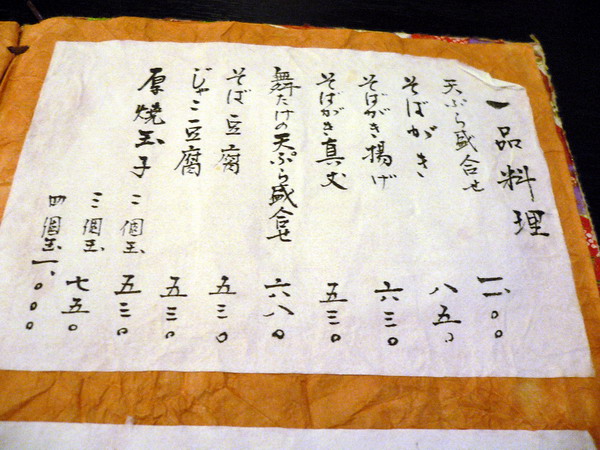 一品料理
天ぷら盛合せ 一一〇〇
そばがき 八五〇
そばがき揚げ 六三〇
そばがき真丈 五三〇
舞たけの天ぷら盛合せ 六八〇
そば豆腐 五三〇
じゃこ豆腐 五三〇
厚焼玉子 二個玉 五三〇
三個玉 七五〇
四個玉 一、〇〇〇